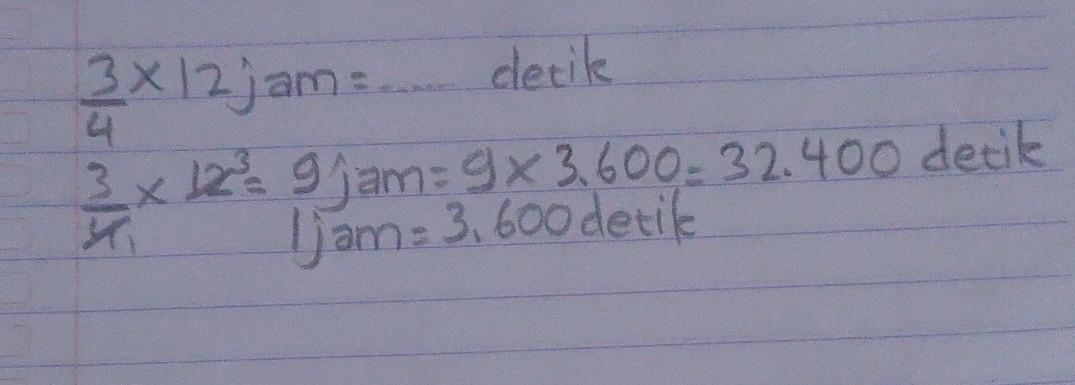 3/4 × 12 jam = ...... detik
3/4₁ × 12³ = 9 jam = 9 × 3.600 = 32.400 detik
1 jam = 3.600 detik